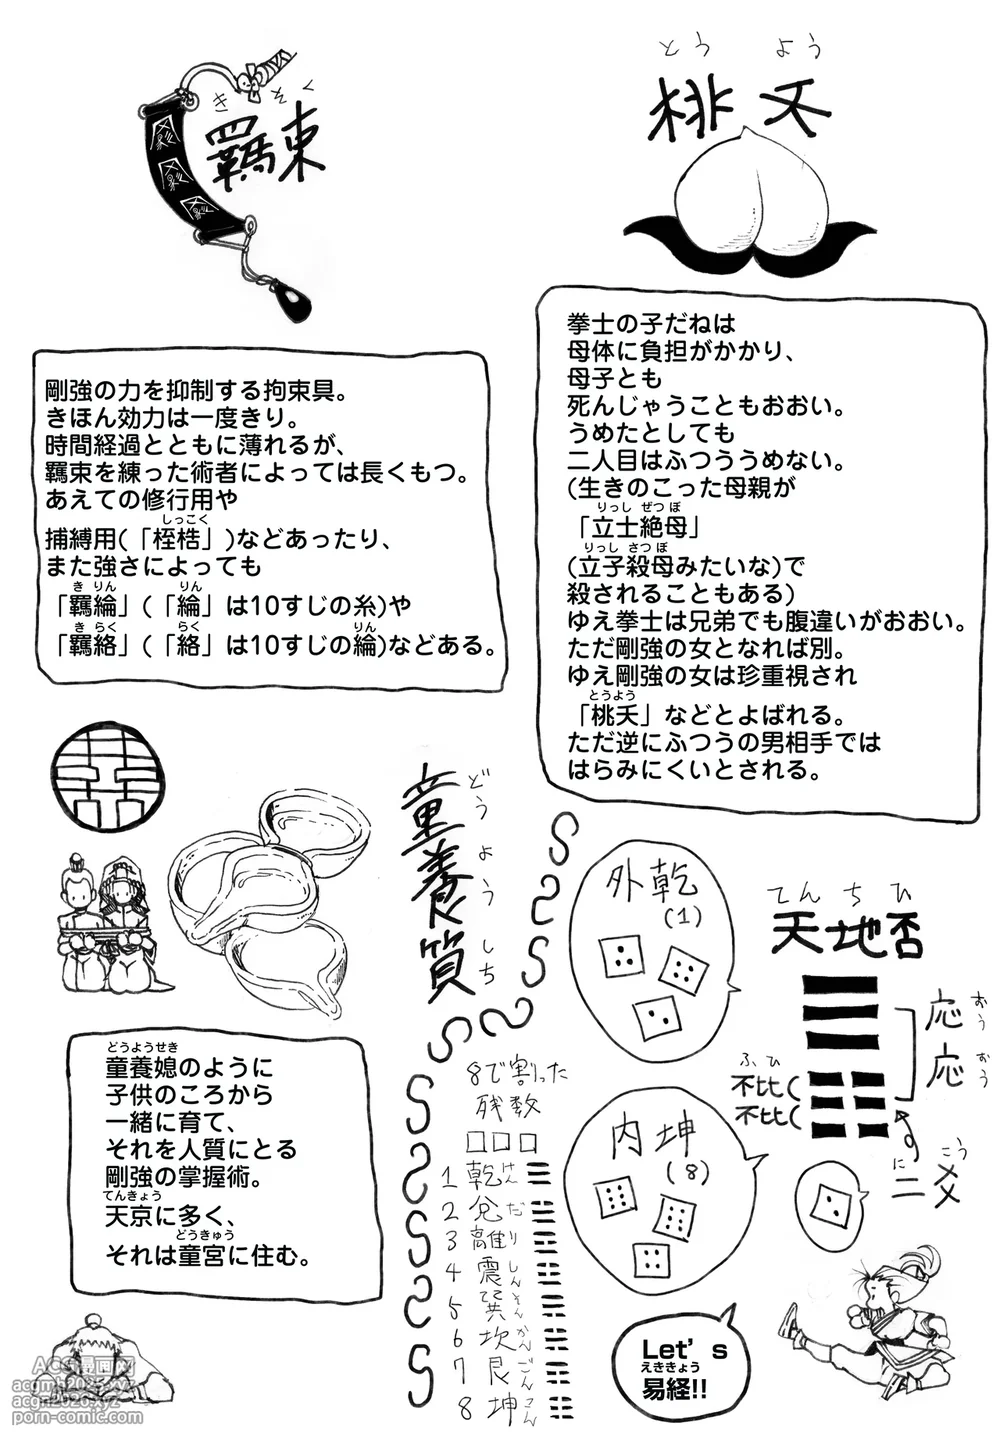 とうよう
桃夭
拳士の子だねは
母体に負担がかかり、
母子とも
死んじゃうこともおおい。
うめたとしても
二人目はふつううめない。
(生きのこった母親が
りっし ぜつぼ
「立士絶母」
りっし さつぼ
(立子殺母みたいな)で
殺されることもある)
ゆえ拳士は兄弟でも腹違いがおおい。
ただ剛強の女となれば別。
ゆえ剛強の女は珍重視され
とうよう
「桃夭」などとよばれる。
ただ逆にふつうの男相手では
はらみにくいとされる。
きそく
羈束
剛強の力を抑制する拘束具。
きほん効力は一度きり。
時間経過とともに薄れるが、
羈束を練った術者によっては長くもつ。
あえての修行用や
しっこく
捕縛用(「桎梏」)などあったり、
また強さによっても
き りん りん
「羈綸」(「綸」は10すじの糸)や
き らく らく りん
「羈絡」(「絡」は10すじの綸)などある。
どうようしち
童養質
どうようせき
童養媳のように
子供のころから
一緒に育て、
それを人質にとる
剛強の掌握術。
てんきょう
天京に多く、
どうきゅう
それは童宮に住む。
外乾
(1)
内坤
(8)
てんちひ
天地否
応 おう
応 おう
ふひ
不比
不比
に こう
二爻
8で割った
残数
□□□
1 乾 けん ☰
2 兌 だ ☱
3 離 り ☲
4 震 しん ☳
5 巽 そん ☴
6 坎 かん ☵
7 艮 ごん ☶
8 坤 こん ☷
Let's
えききょう
易経!!
ACG漫画网
acgmh2025.xyz
acgn2026.xyz
porn-comic.com